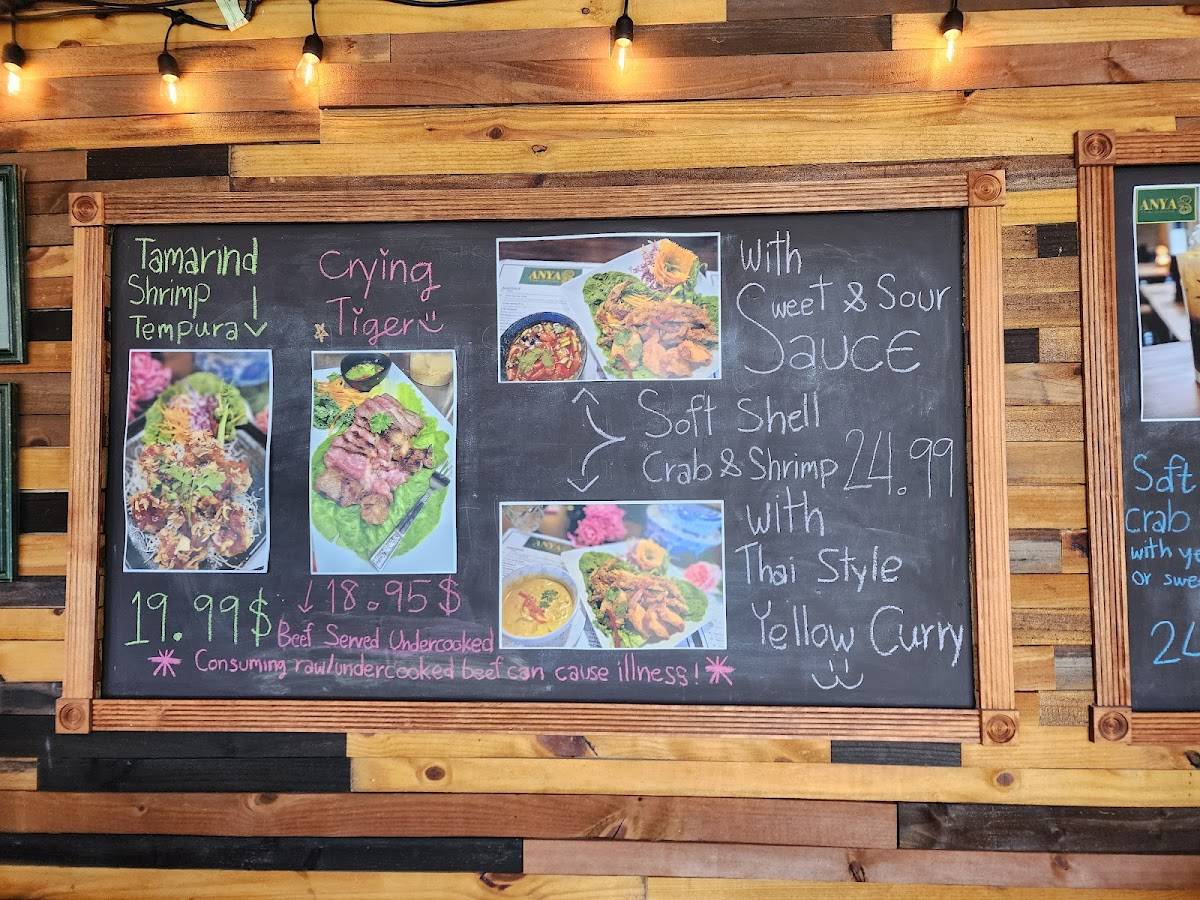 Tamarind
Shrimp
Tempura
19.99$
Crying
Tiger
18.95$
Beef Served Undercooked
* Consuming raw/undercooked beef can cause illness! *
ANYA
With
Sweet & Sour
Sauce
Soft Shell
Crab & Shrimp 24.99
ANYA
with
Thai Style
Yellow Curry
ANYA
Soft
crab
with
or